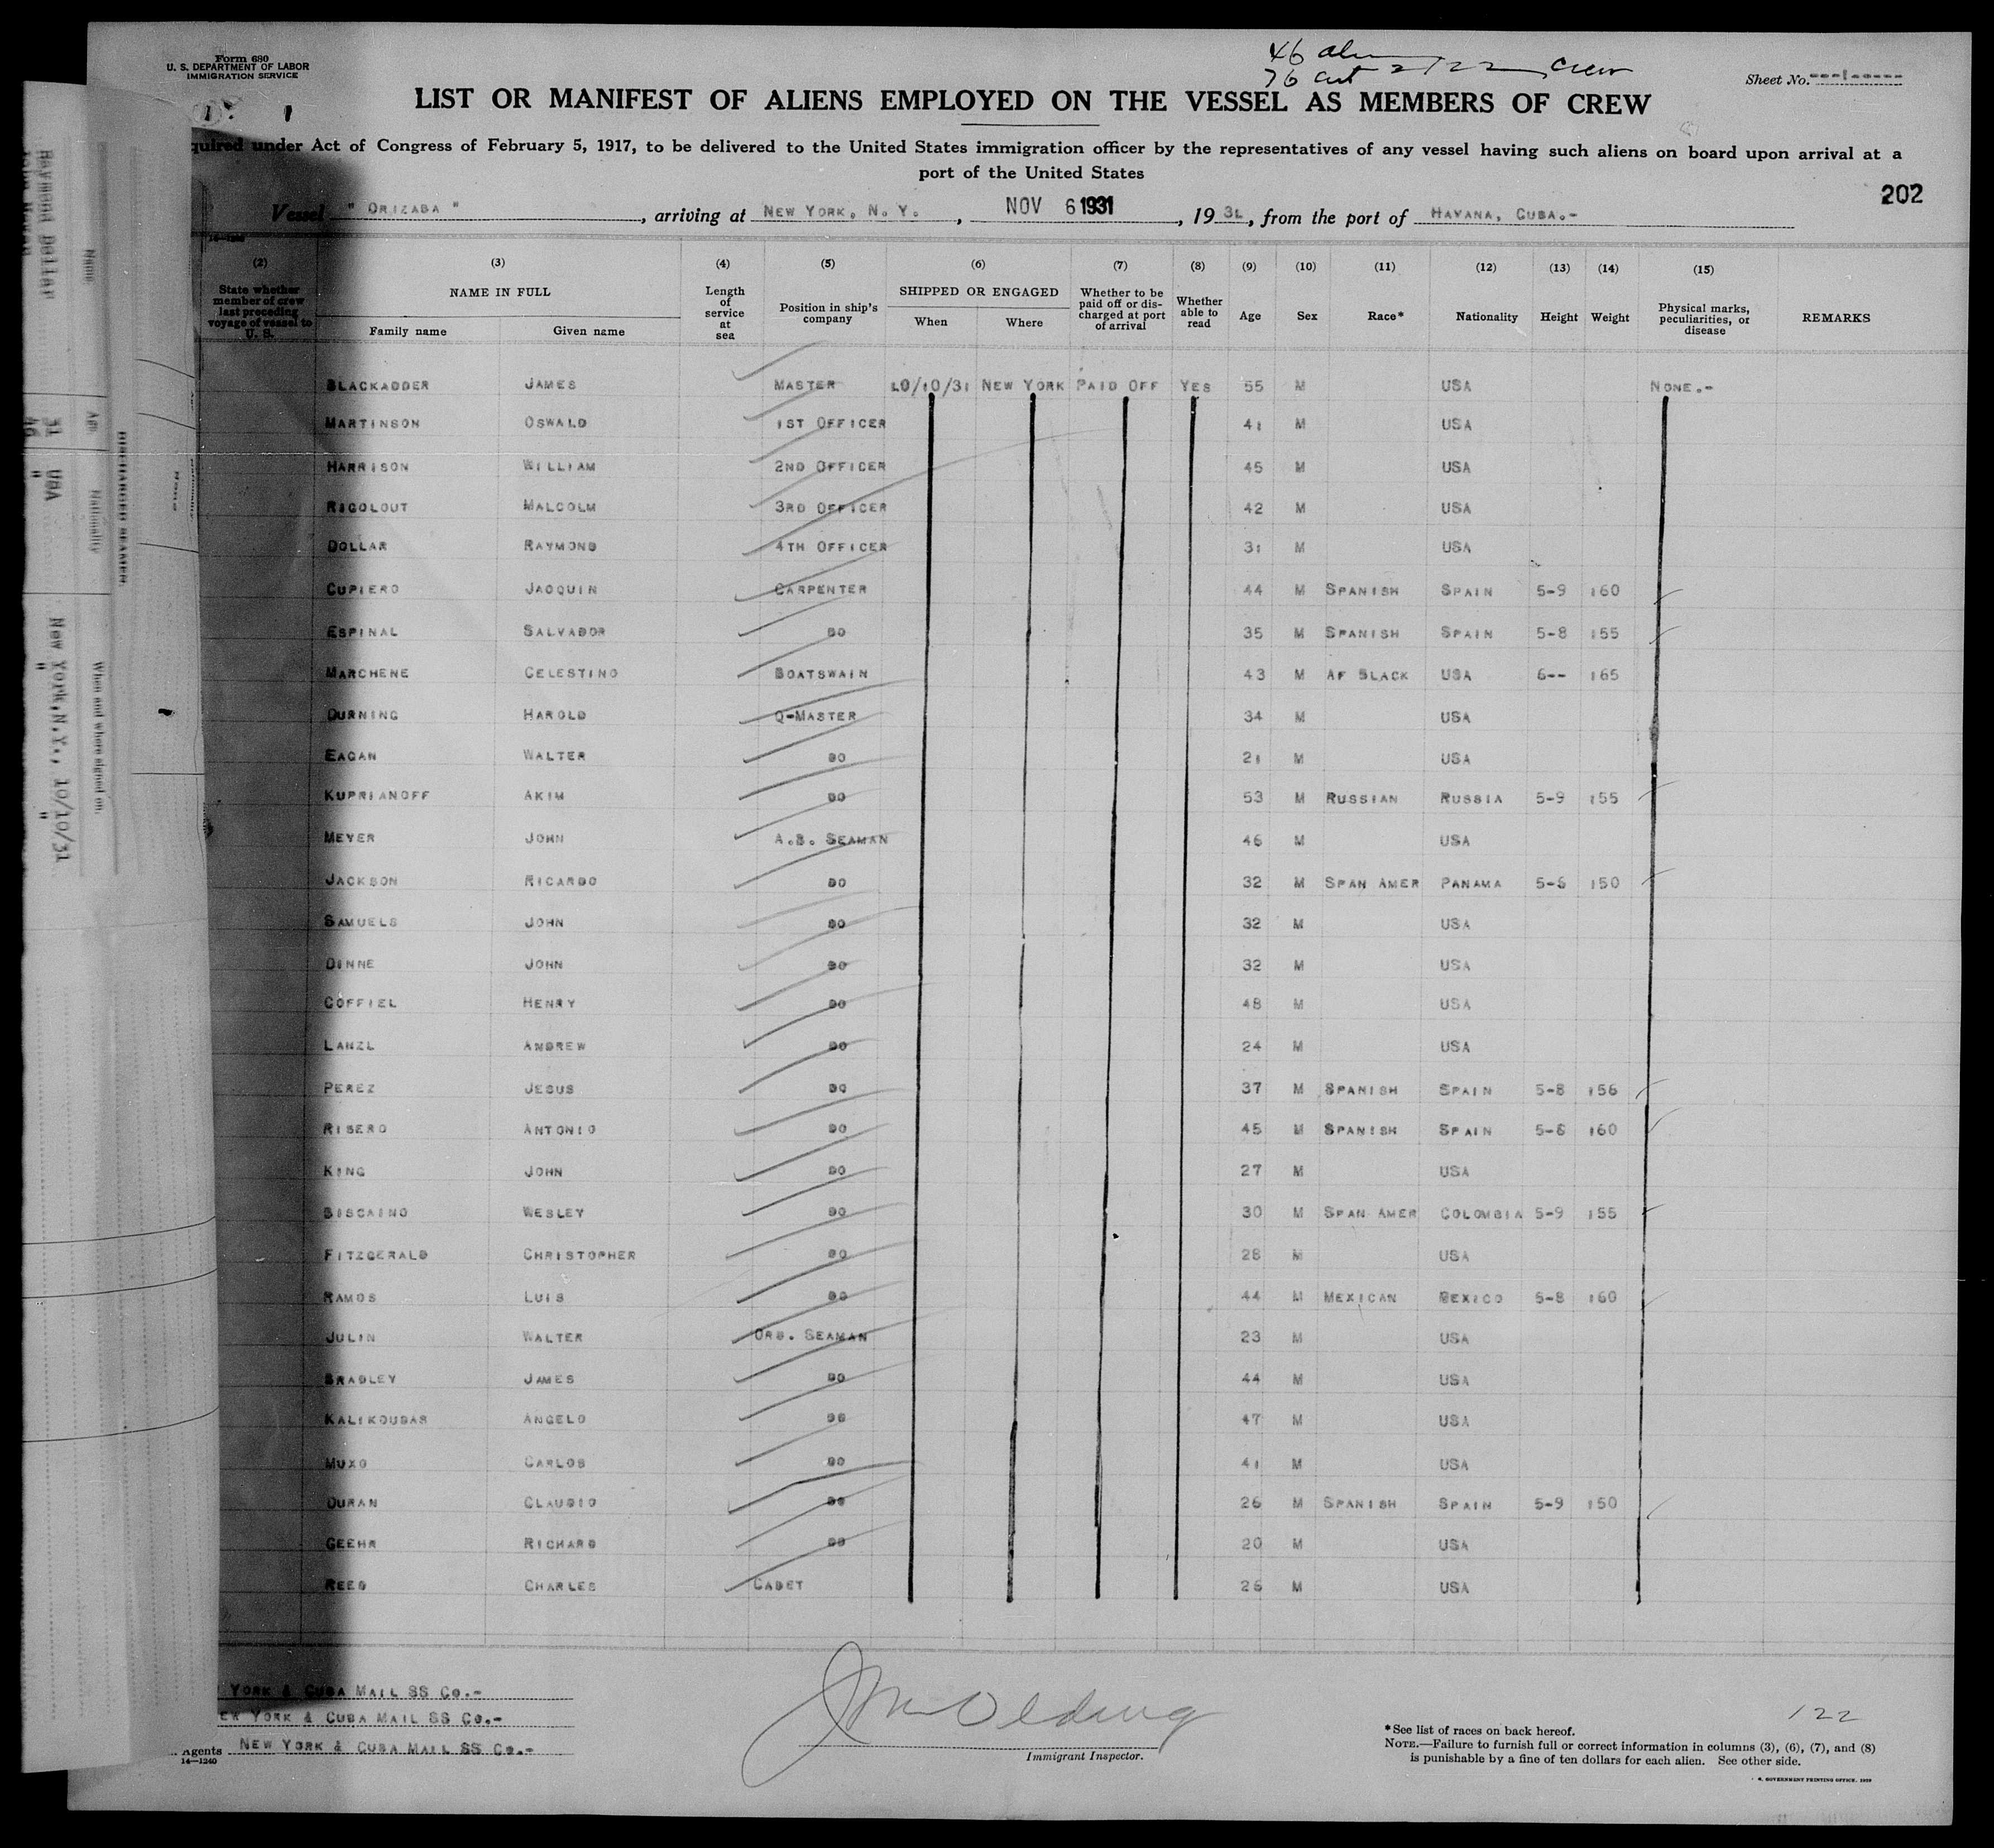 Form 680
U. S. DEPARTMENT OF LABOR
IMMIGRATION SERVICE
46
76 122 crew
Sheet No.
LIST OR MANIFEST OF ALIENS EMPLOYED ON THE VESSEL AS MEMBERS OF CREW
quired under Act of Congress of February 5, 1917, to be delivered to the United States immigration officer by the representatives of any vessel having such aliens on board upon arrival at a
port of the United States
202
Vessel " ORIZABA ", arriving at NEW YORK, N. Y., NOV 6 1931, 19 31, from the port of HAVANA, CUBA.-
(2) (3) (4) (5) (6) (7) (8) (9) (10) (11) (12) (13) (14) (15)
State whether member of crew last preceding voyage of vessel to U. S.
NAME IN FULL
Family name Given name
Length of service at sea
Position in ship's company
SHIPPED OR ENGAGED
When Where
Whether to be paid off or discharged at port of arrival
Whether able to read
Age Sex Race* Nationality Height Weight
Physical marks, peculiarities, or disease
REMARKS
BLACKADDER JAMES MASTER 10/10/31 NEW YORK PAID OFF YES 55 M USA NONE.-
MARTINSON OSWALD 1ST OFFICER 41 M USA
HARRISON WILLIAM 2ND OFFICER 45 M USA
RIGOLOUT MALCOLM 3RD OFFICER 42 M USA
DOLLAR RAYMOND 4TH OFFICER 31 M USA
CUPIERO JAOQUIN CARPENTER 44 M SPANISH SPAIN 5-9 160
ESPINAL SALVADOR DO 35 M SPANISH SPAIN 5-8 155
MARCHENE CELESTINO BOATSWAIN 43 M AF BLACK USA 6-- 165
DURNING HAROLD Q-MASTER 34 M USA
EAGAN WALTER DO 21 M USA
KUPRIANOFF AKIM DO 53 M RUSSIAN RUSSIA 5-9 155
MEYER JOHN A.B. SEAMAN 46 M USA
JACKSON RICARDO DO 32 M SPAN AMER PANAMA 5-6 150
SAMUELS JOHN DO 32 M USA
DINNE JOHN DO 32 M USA
COFFIEL HENRY DO 48 M USA
LANZL ANDREW DO 24 M USA
PEREZ JESUS DO 37 M SPANISH SPAIN 5-8 156
RIBERO ANTONIO DO 45 M SPANISH SPAIN 5-6 160
KING JOHN DO 27 M USA
BISCAINO WESLEY DO 30 M SPAN AMER COLOMBIA 5-9 155
FITZGERALD CHRISTOPHER DO 28 M USA
RAMOS LUIS DO 44 M MEXICAN MEXICO 5-8 160
JULIN WALTER ORD. SEAMAN 23 M USA
BRADLEY JAMES DO 44 M USA
KALIKOUBAS ANGELO DO 47 M USA
MUXO CARLOS DO 41 M USA
DURAN CLAUDIO DO 26 M SPANISH SPAIN 5-9 150
GEEHR RICHARD DO 20 M USA
REED CHARLES CADET 26 M USA
YORK & CUBA MAIL SS CO.-
EW YORK & CUBA MAIL SS CO.-
Agents NEW YORK & CUBA MAIL SS CO.-
14—1240
Immigrant Inspector.
122
*See list of races on back hereof.
NOTE.—Failure to furnish full or correct information in columns (3), (6), (7), and (8)
is punishable by a fine of ten dollars for each alien. See other side.
GOVERNMENT PRINTING OFFICE
Raymond Dollar 31 USA New York,N.Y., 10/10/31
Name Age Nationality When and where signed on.
DISCHARGED SEAMEN.